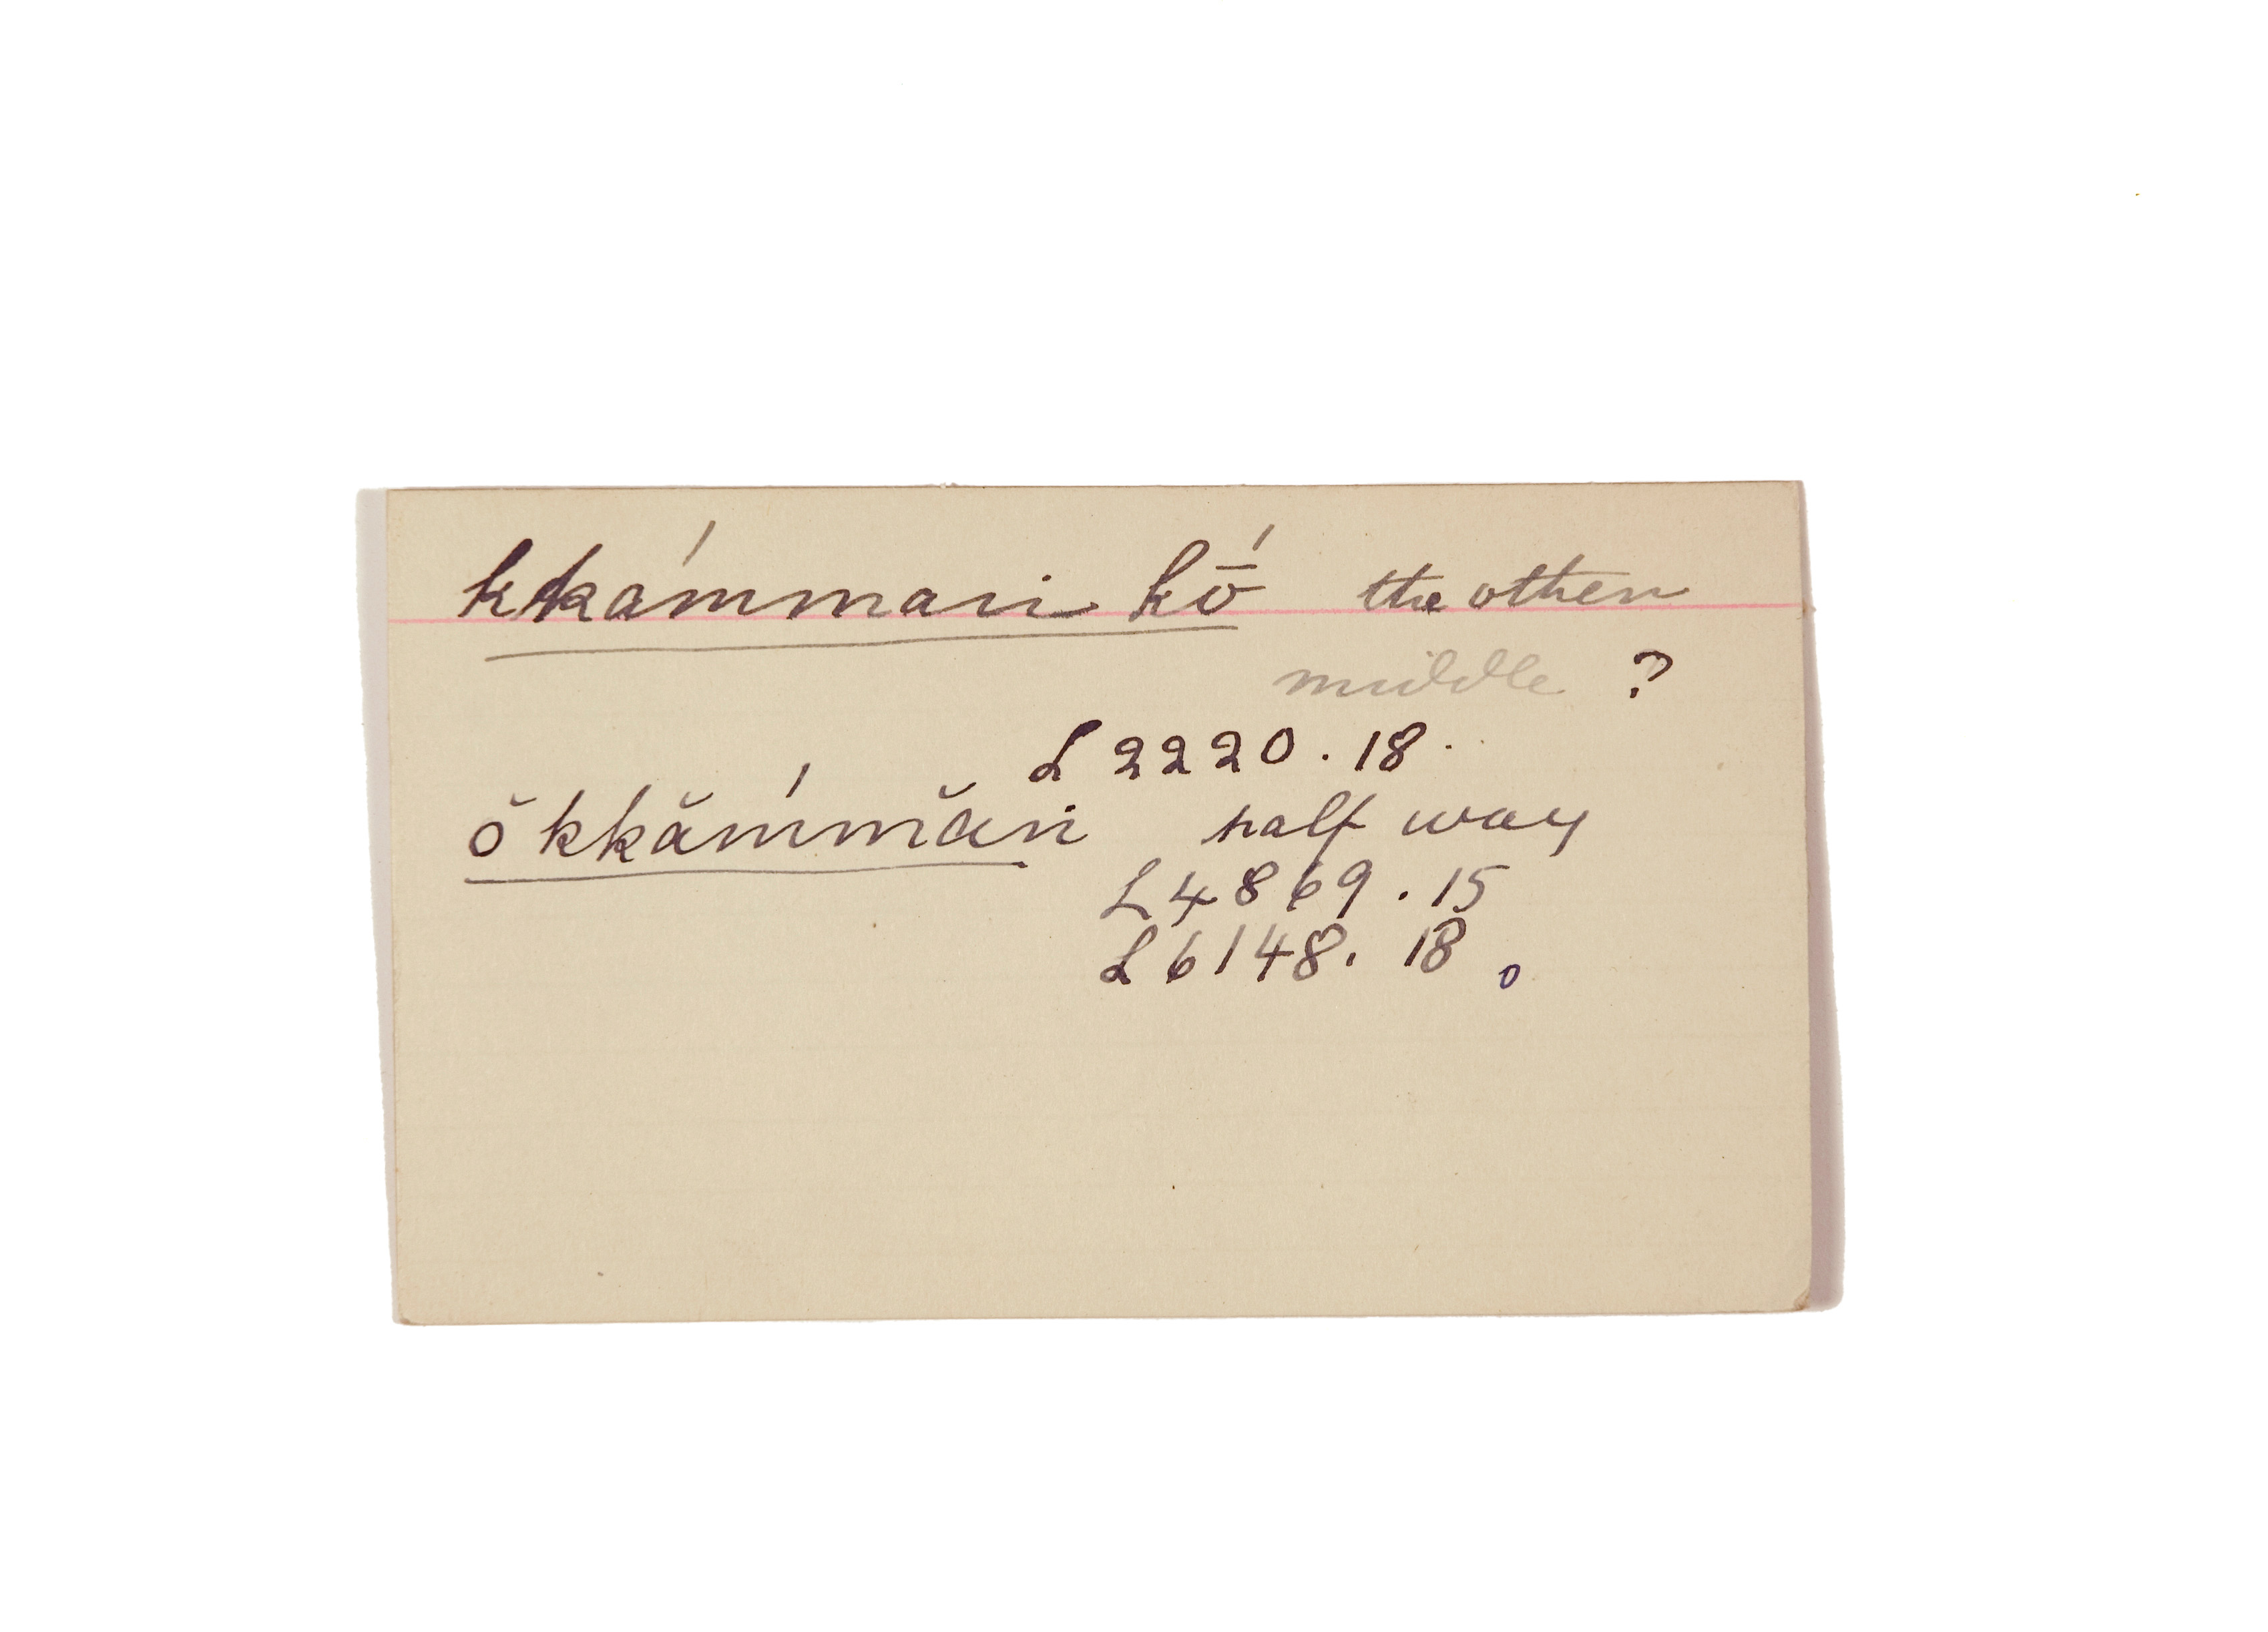 kkámmari kṓ the other
middle ?
L 2220.18.
ŏkkămḿăn half way
L 4869.15
L 6148.18.